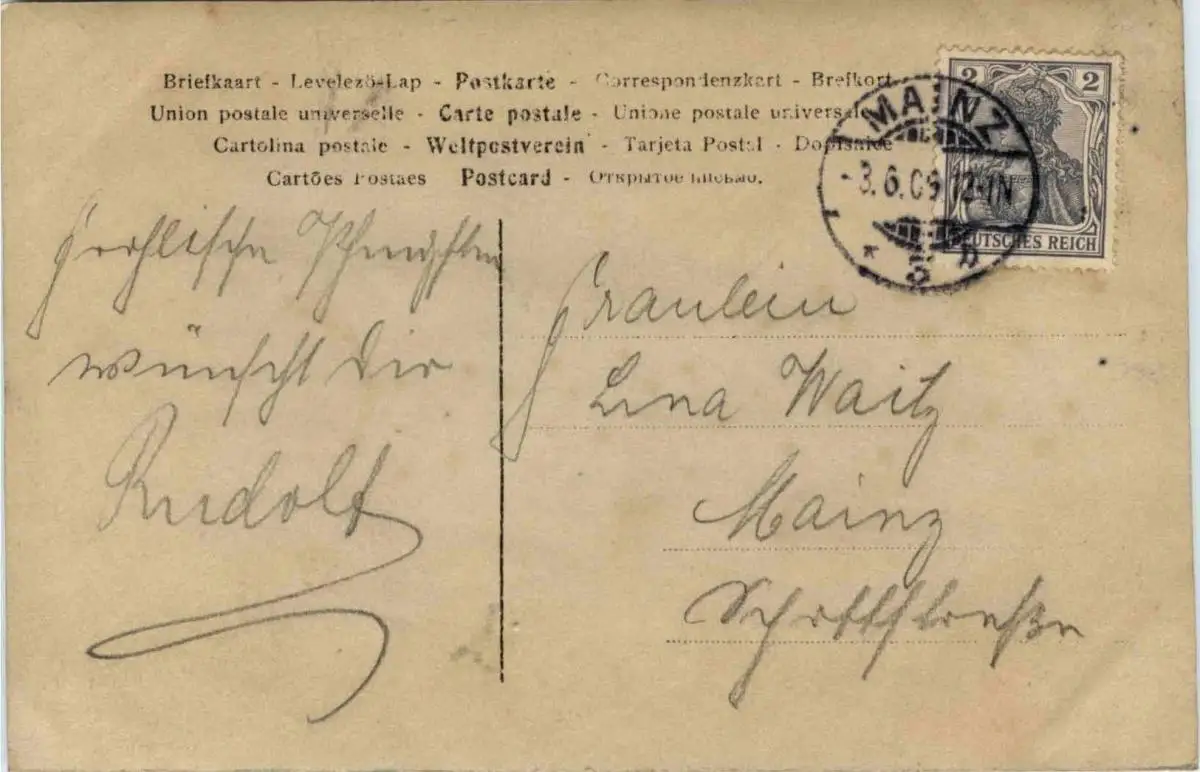 Briefkaart - Levelező-Lap - Postkarte - Correspondenzkart - Brefkort
Union postale universelle - Carte postale - Unione postale universale
Cartolina postale - Weltpostverein - Tarjeta Postal - Dopisnice
Cartões Postaes Postcard - Открытое письмо.
2 2
DEUTSCHES REICH
MAINZ
-3.6.09.12-1N
* 3 b
Fröhliche Pfingsten
wünscht Dir
Rudolf
Fräulein
Lina Waitz
Mainz
Schottstraße